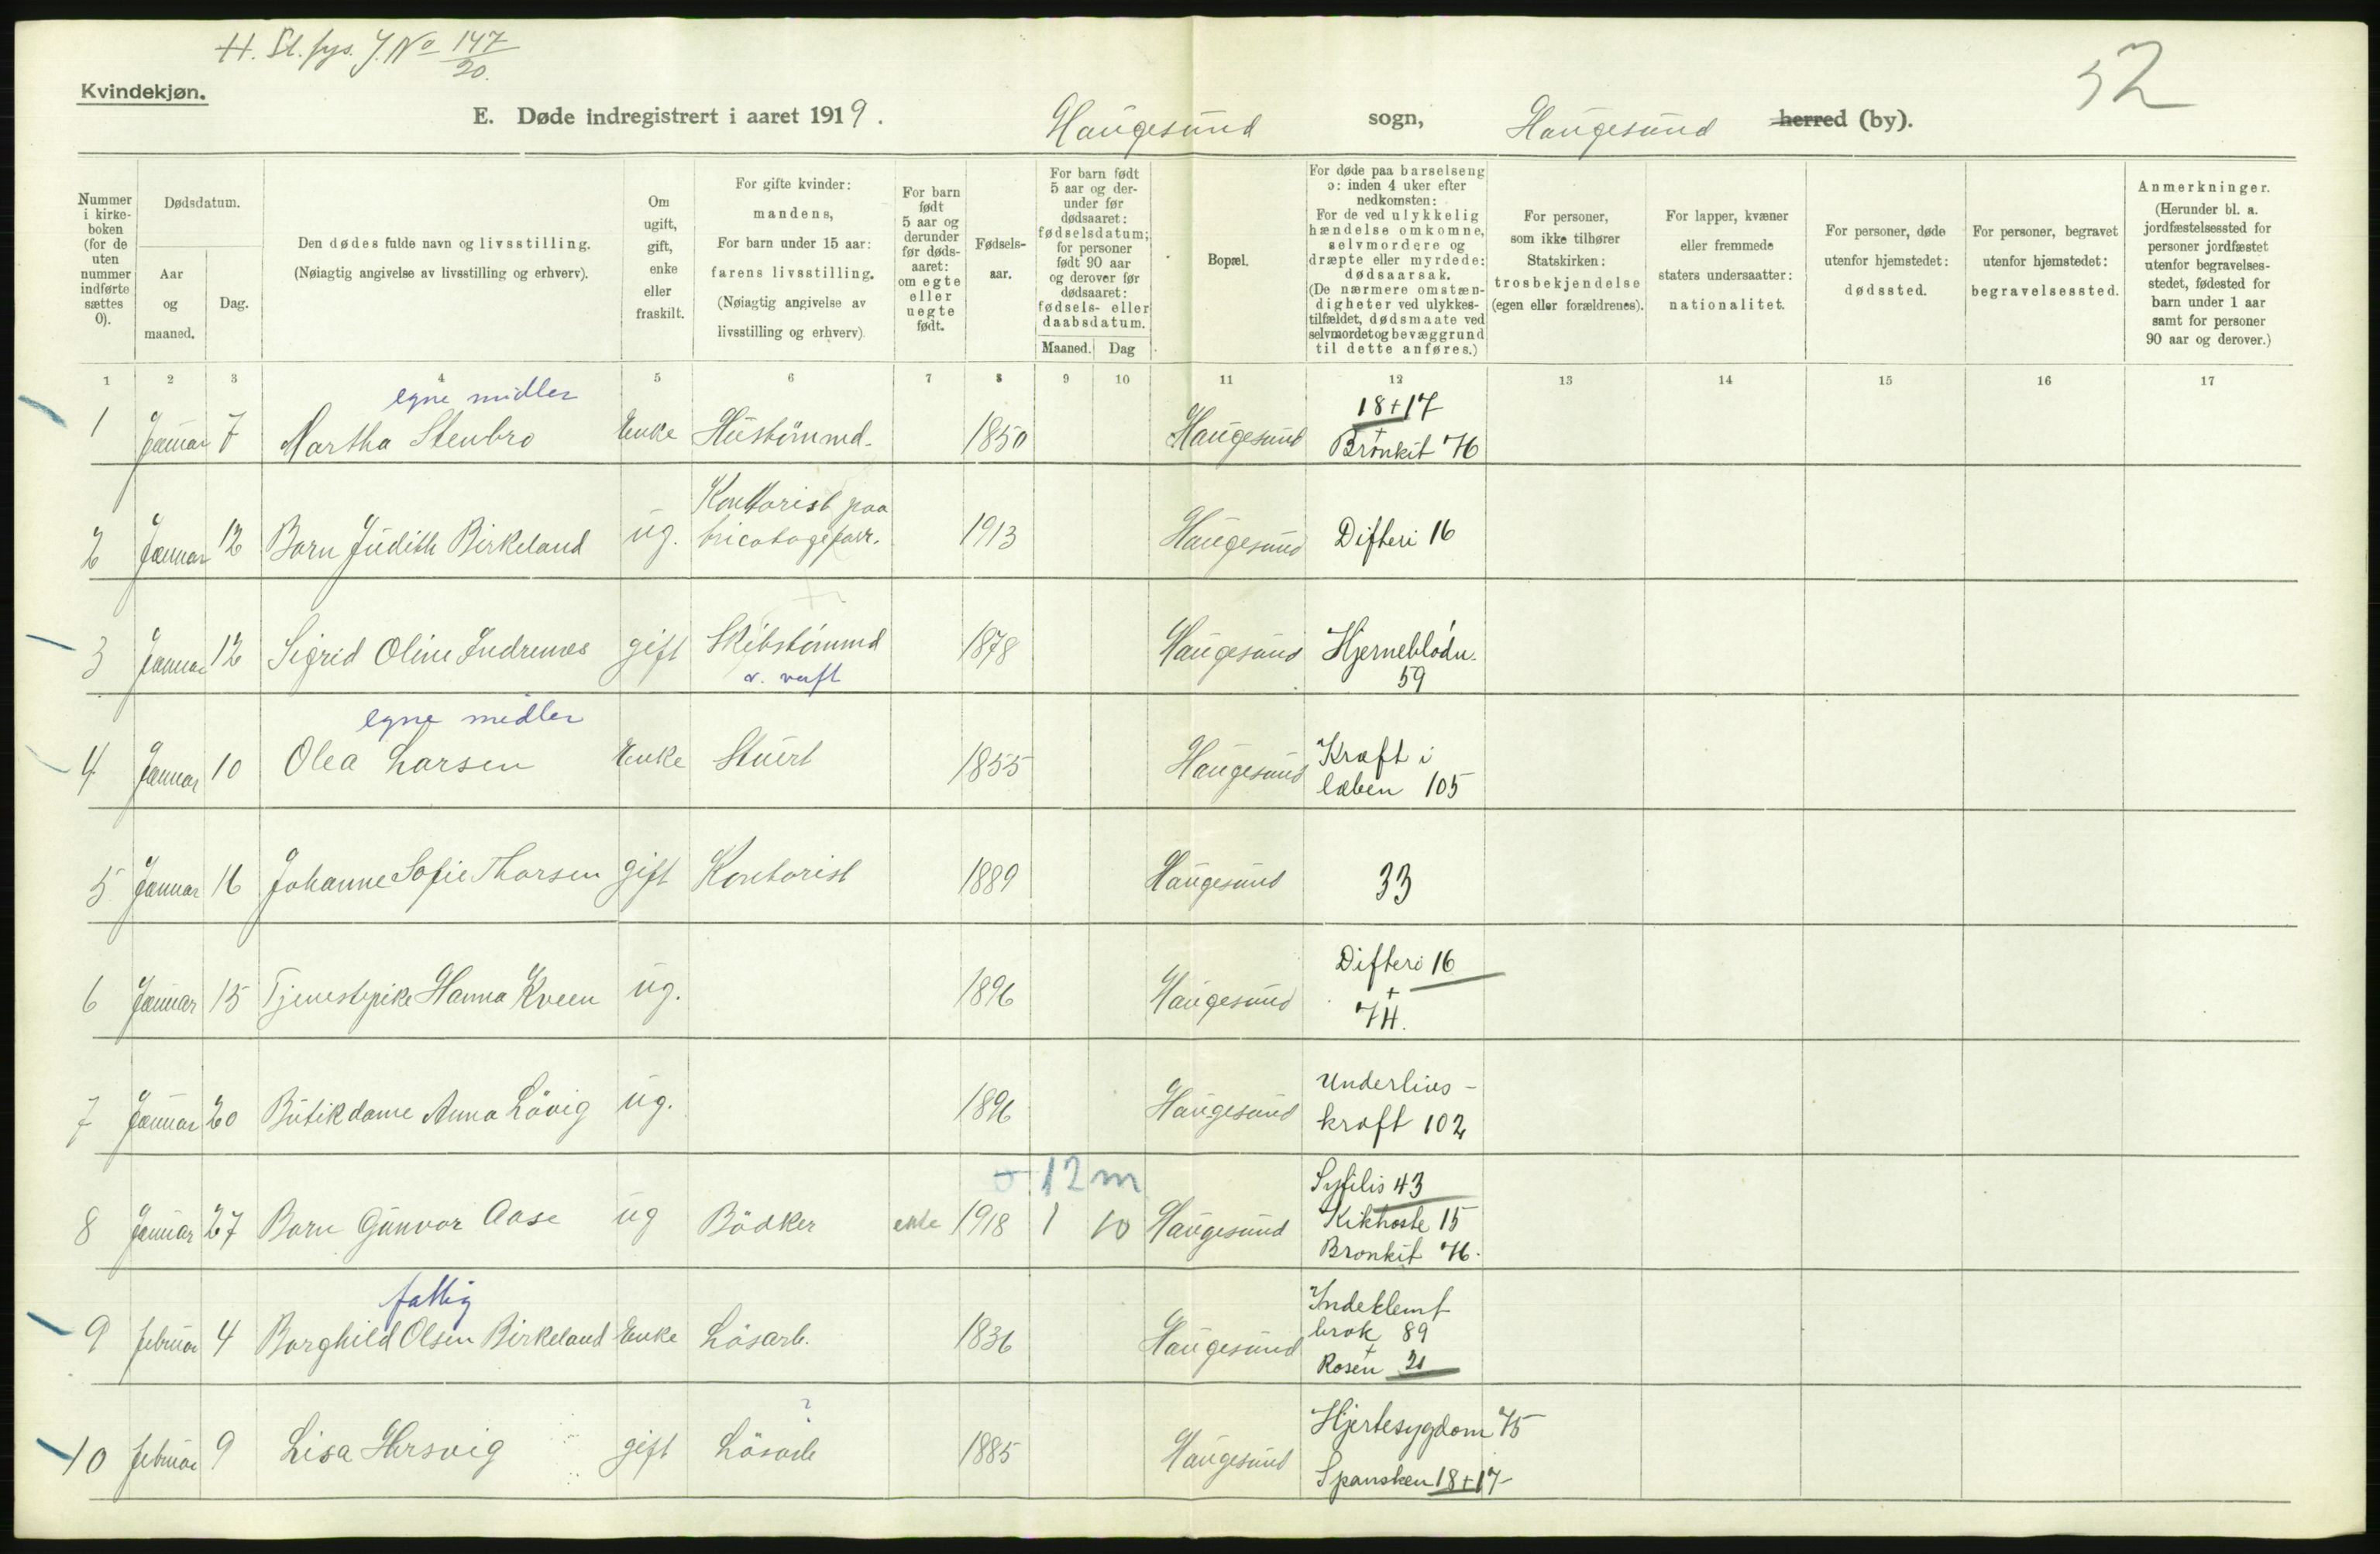 H. St. fys. J. No 147/20.
52
Kvindekjøn.
E. Døde indregistrert i aaret 1919. Haugesund sogn, Haugesund herred (by).
Nummer i kirkeboken (for de uten nummer indførte sættes 0).
Dødsdatum.
Aar og maaned.
Dag.
Den dødes fulde navn og livsstilling.
(Nøiagtig angivelse av livsstilling og erhverv).
Om ugift, gift, enke eller fraskilt.
For gifte kvinder: mandens,
For barn under 15 aar: farens livsstilling.
(Nøiagtig angivelse av livsstilling og erhverv)
For barn født 5 aar og derunder før dødsaaret: om egte eller uegte født.
Fødselsaar.
For barn født 5 aar og derunder før dødsaaret: fødselsdatum; for personer født 90 aar og derover før dødsaaret: fødsels- eller daabsdatum.
Maaned. Dag
Bopæl.
For døde paa barselseng ɔ: inden 4 uker efter nedkomsten:
For de ved ulykkelig hændelse omkomne, selvmordere og dræpte eller myrdede: dødsaarsak.
(De nærmere omstændigheter ved ulykkestilfældet, dødsmaate ved selvmordet og bevæggrund til dette anføres.)
For personer, som ikke tilhører Statskirken: trosbekjendelse (egen eller forældrenes).
For lapper, kvæner eller fremmede staters undersaatter: nationalitet.
For personer, døde utenfor hjemstedet: dødssted.
For personer, begravet utenfor hjemstedet: begravelsessted.
Anmerkninger.
(Herunder bl. a. jordfæstelsessted for personer jordfæstet utenfor begravelsesstedet, fødested for barn under 1 aar samt for personer 90 aar og derover.)
1 2 3 4 5 6 7 8 9 10 11 12 13 14 15 16 17
egne midler 18+17 +
1 Januar 7 Martha Stenbro Enke Hustømmd. 1850 Haugesund Bronkit 76
Kontorist paa
2 Januar 12 Barn Judith Birkeland ug. tricotagefavr. 1913 Haugesund Difteri 16
3 Januar 12 Sigrid Oline Indrenes gift Skibstømmd 1878 Haugesund Hjerneblödn.
v. verft 59
egne midler
4 Januar 10 Olea Larsen Enke Stuert 1855 Haugesund Kræft i
læben 105
5 Januar 16 Johanne Sofie Thorsen gift Kontorist 1889 Haugesund 33
Difteri 16
6 Januar 15 Tjenestepike Hanna Kveen ug. 1896 Haugesund +
74.
Underlivs-
7 Januar 20 Butikdame Anna Lövig ug. 1896 Haugesund kræft 102
0-12 m Syfilis 43
8 Januar 27 Barn Gunvor Aase ug Bödker ekte 1918 1 10 Haugesund Kikhoste 15
Bronkit 76.
fattig Indeklemt
9 februar 4 Borghild Olsen Birkeland Enke Lösarb. 1836 Haugesund brok 89
+
Rosen 21
? Hjertesygdom 75
10 februar 9 Lisa Hersvig gift Lösarb 1885 Haugesund
Spansken 18+17